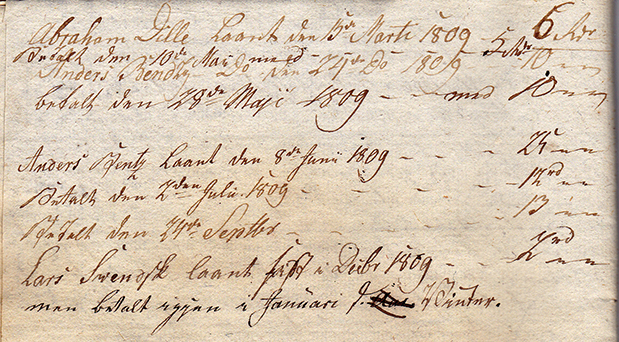 Abraham Dille Laant den 5te Marti 1809 - 6 Rdr
Betalt den 10de Mai med - 5 Rdr
Anders Bentz Do den 24de Do 1809 10
betalt den 28de Maji 1809 - med 10
Anders Bentz Laant den 8de Junii 1809 - - - 25
Betalt den 2den Julii 1809 - - - - 12 rd
Betalt den 24de Septbr - - - - 13
Lars Swendsk laant sist i Debr 1809 - - - 2 rd
men betalt igjen i Januari Vinter.